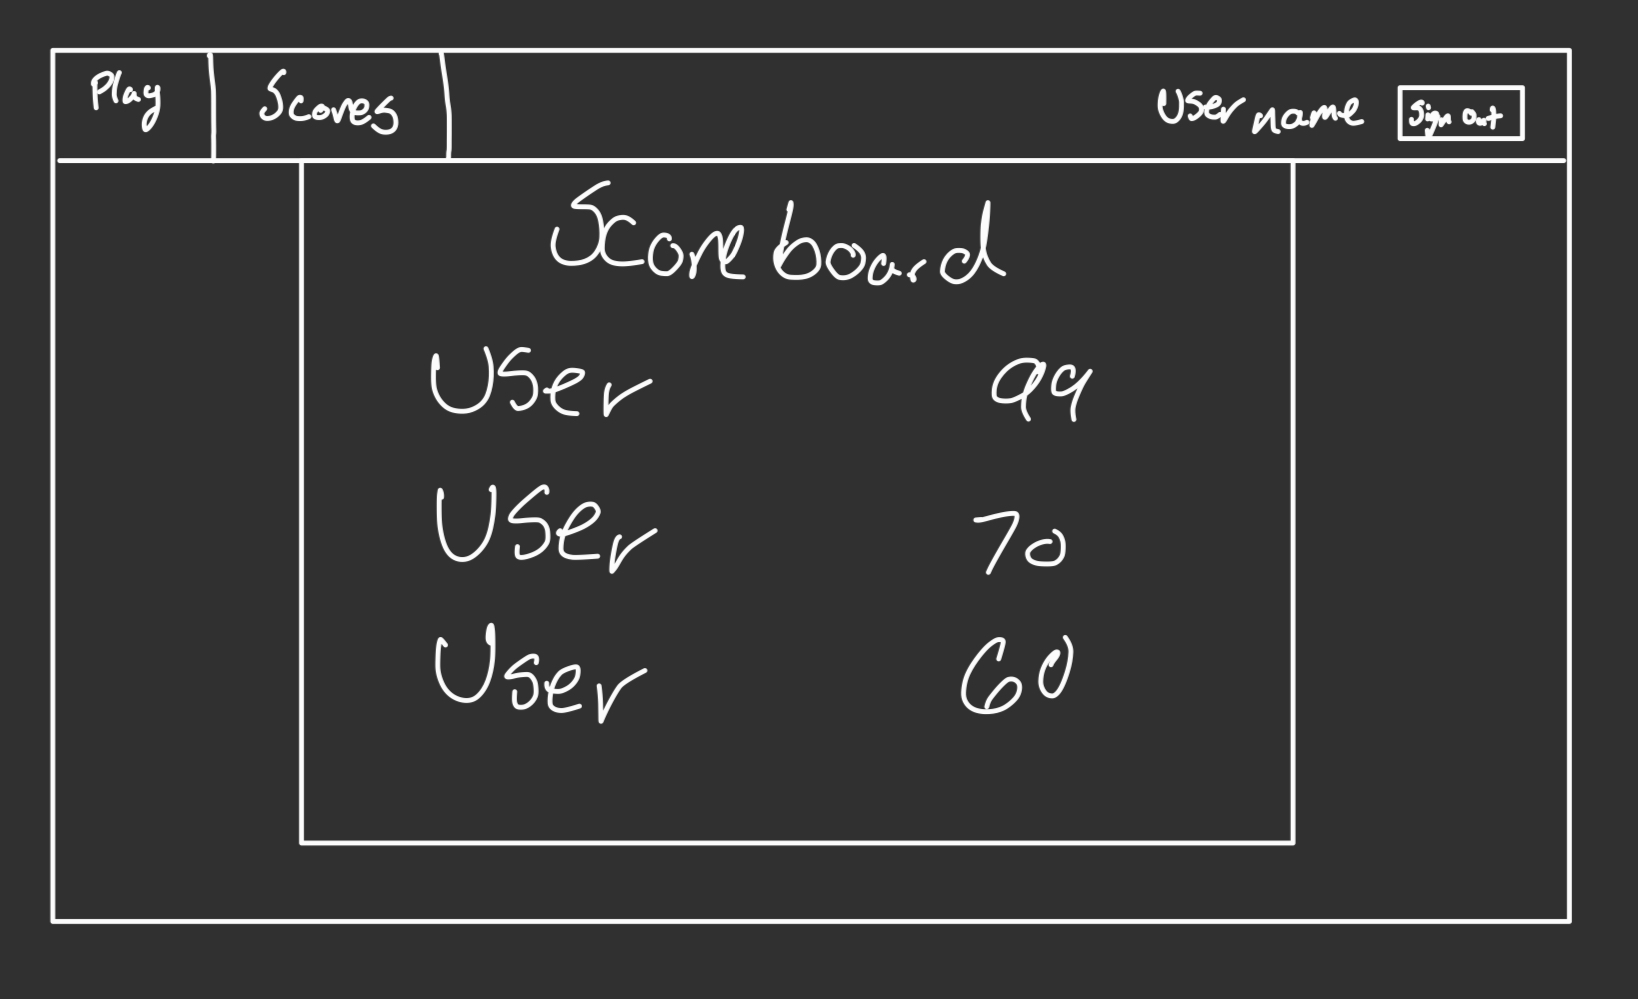 Play Scores Username Sign Out
Scoreboard
User 99
User 70
User 60